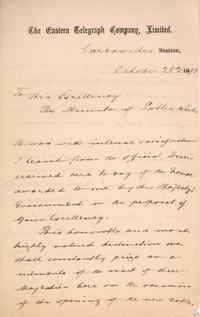 The Eastern Telegraph Company, Limited.
Carcavellos Station,
October 28th 18
To His Excellency
The Minister of Public Works
It was with intense satisfaction
I learnt from the official
received here to day of the honor
awarded to me by His Majesty's
Government on the proposal of
Your Excellency.
This honorable and most
highly valued distinction we
shall constantly prize as a
memento of the visit of their
Majesties here on the occasion
of the opening of the new cable